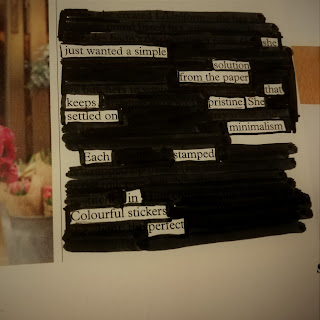 she
just wanted a simple
solution
from the paper
that
keeps pristine. She
settled on
minimalism
Each stamped
in
Colourful stickers
perfect